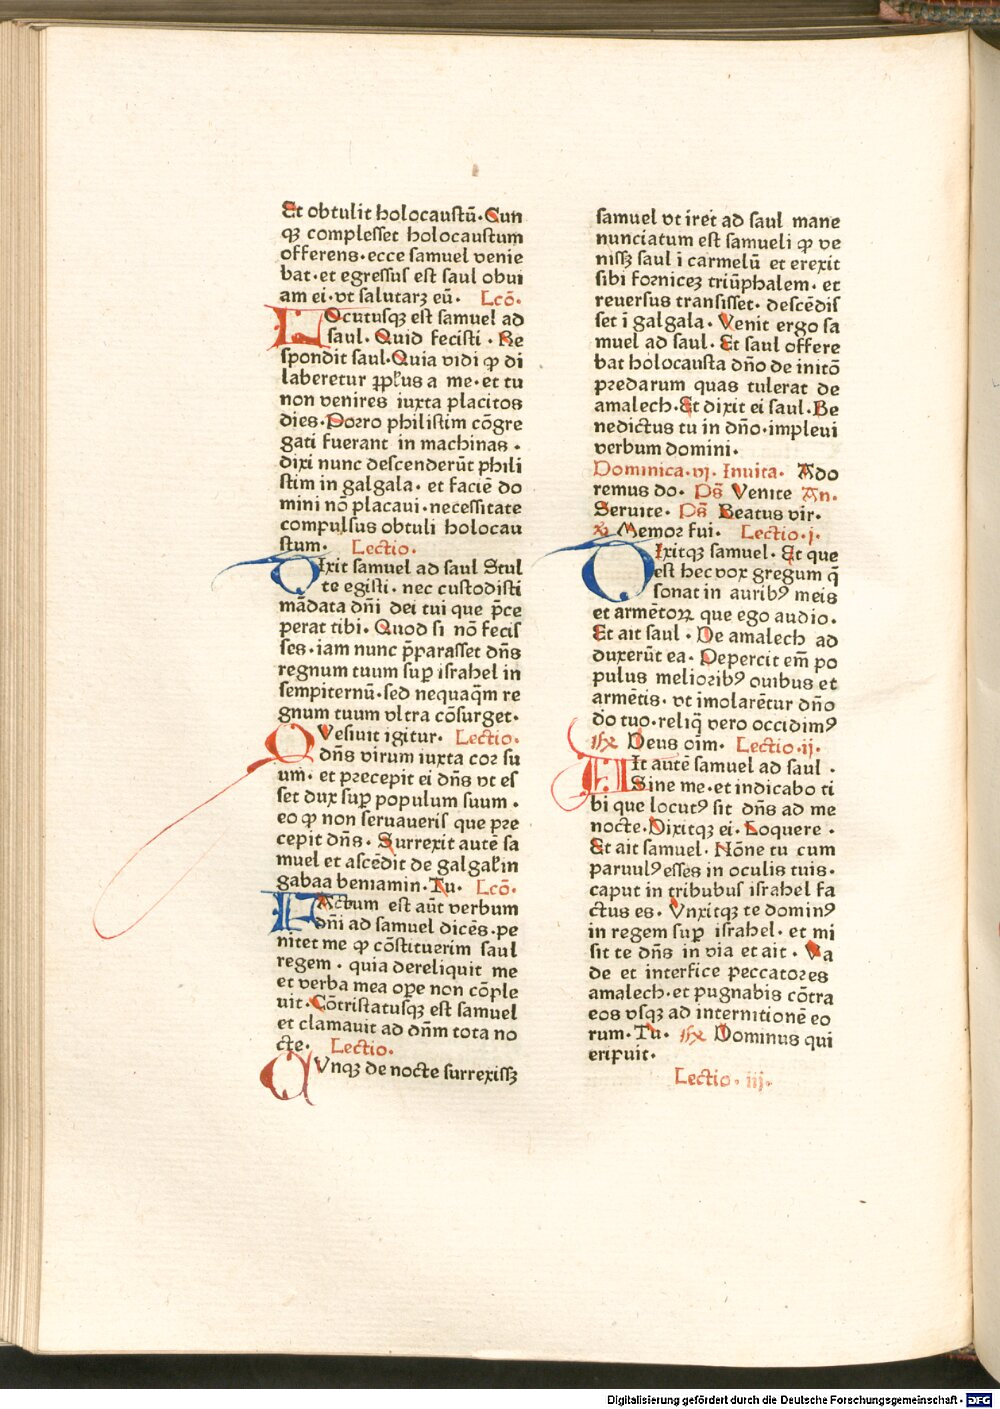 Et obtulit holocaustū. Cun
qꝫ complesset holocaustum
offerens. ecce samuel venie
bat. et egressus est saul obui
am ei. vt salutarꝫ eū. Lcō.
LOcutusqꝫ est samuel ad
saul. Quid fecisti. Re
spondit saul. Quia vidi ꝙ di
laberetur ꝓpl'us a me. et tu
non venires iuxta placitos
dies. Porro philistim cōgre
gati fuerant in machinas.
dixi nunc descenderūt phili
stim in galgala. et faciē do
mini nō placaui. necessitate
compulsus obtuli holocau
stum. Lectio.
DIxit samuel ad saul Stul
te egisti. nec custodisti
mādata dn̄i dei tui que p̄ce
perat tibi. Quod si nō fecis
ses. iam nunc p̄parasset dn̄s
regnum tuum suꝑ israhel in
sempiternū. sed nequaq̄m re
gnum tuum vltra cōsurget.
QVesiuit igitur. Lectio.
dn̄s virum iuxta cor su
um. et precepit ei dn̄s vt es
set dux suꝑ populum suum.
eo ꝙ non seruaueris que pre
cepit dn̄s. Surrexit autē sa
muel et ascēdit de galgal'in
gabaa beniamin. Tu. Lcō.
FActum est aūt verbum
dn̄i ad samuel dicēs. pe
nitet me ꝙ cōstituerim saul
regem. quia dereliquit me
et verba mea oꝑe non cōple
uit. Cōtristatusqꝫ est samuel
et clamauit ad dn̄m tota no
cte. Lectio.
CVnqꝫ de nocte surrexissꝫ
samuel vt iret ad saul mane
nunciatum est samueli ꝙ ve
nissꝫ saul i carmelū et erexit
sibi forniceꝫ triūphalem. et
reuersus transisset. descēdis
set ī galgala. Venit ergo sa
muel ad saul. Et saul offere
bat holocausta dn̄o de initō
predarum quas tulerat de
amalech. Et dixit ei saul. Be
nedictus tu in dn̄o. impleui
verbum domini.
Dominica. vj. Inuita. Ado
remus do. Ps̄ Venite An.
Seruite. Ps̄ Beatus vir.
℟ Memor fui. Lectio. j.
DIxitqꝫ samuel. Et que
est hec vox gregum q̄
sonat in auribꝰ meis
et armētoꝝ que ego audio.
Et ait saul. De amalech ad
duxerūt ea. Pepercit em̄ po
pulus melioribꝰ ouibus et
armētis. vt imolarētur dn̄o
do tuo. reliq̄ vero occidimꝰ
℟ Deus oīm. Lectio. ij.
AIt autē samuel ad saul.
Sine me. et indicabo ti
bi que locutꝰ sit dn̄s ad me
nocte. Dixitqꝫ ei. Loquere.
Et ait samuel. Nōne tu cum
paruulꝰ esses in oculis tuis.
caput in tribubus israhel fa
ctus es. Vnxitqꝫ te dominꝰ
in regem suꝑ israhel. et mi
sit te dn̄s in via et ait. Va
de et interfice peccatores
amalech. et pugnabis cōtra
eos vsqꝫ ad internitionē eo
rum. Tu. ℟ Dominus qui
eripuit.
Lectio. iij.
Digitalisierung gefördert durch die Deutsche Forschungsgemeinschaft - DFG